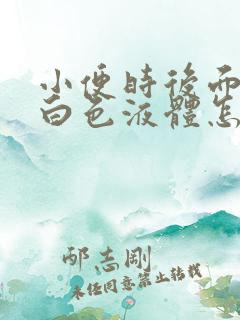 小便時後面
白色液體怎
邴志剛
未经同意禁止转载